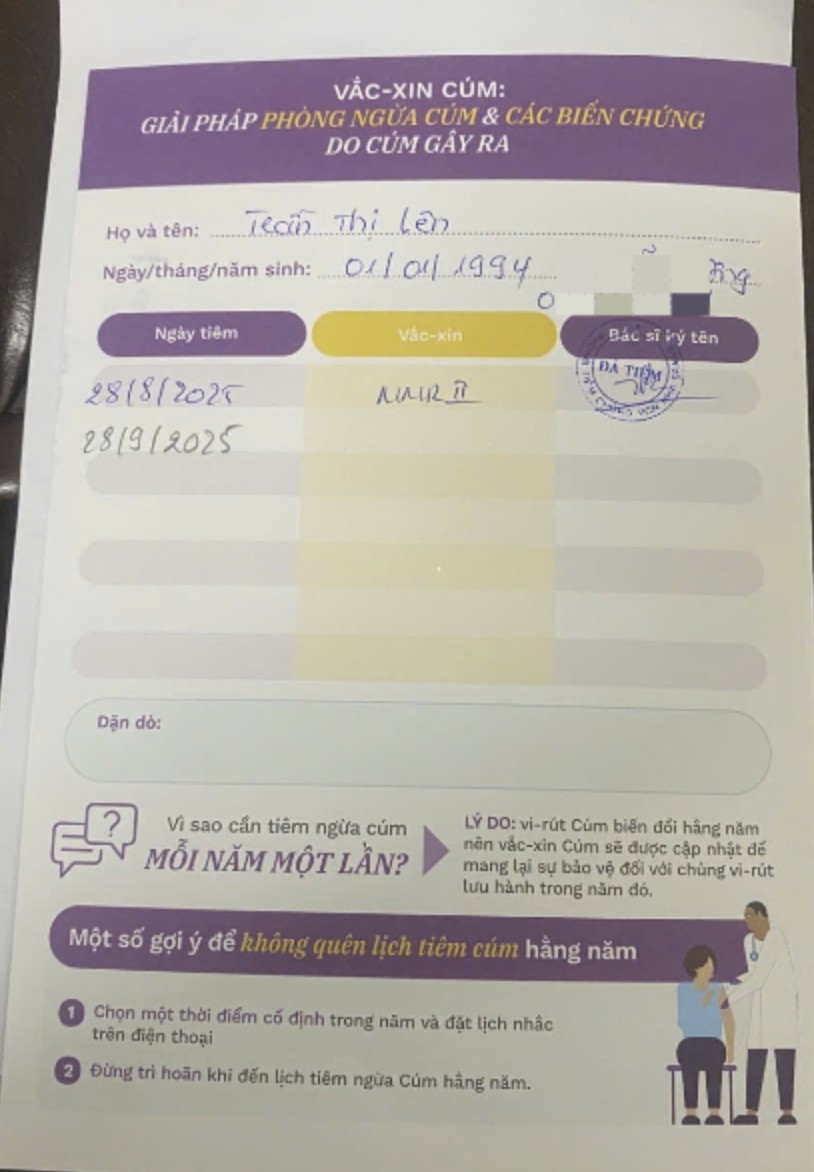 VẮC-XIN CÚM:
GIẢI PHÁP PHÒNG NGỪA CÚM & CÁC BIẾN CHỨNG
DO CÚM GÂY RA
Họ và tên: Trần Thị Lên
Ngày/tháng/năm sinh: 01/01/1994
Ngày tiêm
Vắc-xin
Bác sĩ ký tên
28/8/2025 MMR II
ĐÃ TIÊM
28/9/2025
Dặn dò:
Vì sao cần tiêm ngừa cúm
MỖI NĂM MỘT LẦN?
LÝ DO: vi-rút Cúm biến đổi hằng năm
nên vắc-xin Cúm sẽ được cập nhật để
mang lại sự bảo vệ đối với chủng vi-rút
lưu hành trong năm đó.
Một số gợi ý để không quên lịch tiêm cúm hằng năm
1 Chọn một thời điểm cố định trong năm và đặt lịch nhắc
trên điện thoại
2 Đừng trì hoãn khi đến lịch tiêm ngừa Cúm hằng năm.